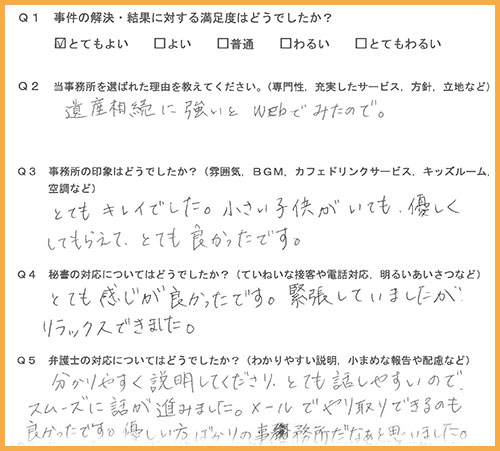 Q1 事件の解決・結果に対する満足度はどうでしたか?
☑とてもよい □よい □普通 □わるい □とてもわるい
Q2 当事務所を選ばれた理由を教えてください。(専門性，充実したサービス，方針，立地など)
遺産相続に強いとWebでみたので。
Q3 事務所の印象はどうでしたか?(雰囲気，BGM，カフェドリンクサービス，キッズルーム，
空調など)
とてもキレイでした。小さい子供がいても、優しく
してもらえて、とても良かったです。
Q4 秘書の対応についてはどうでしたか?(ていねいな接客や電話対応，明るいあいさつなど)
とても感じが良かったです。緊張していましたが
リラックスできました。
Q5 弁護士の対応についてはどうでしたか?(わかりやすい説明，小まめな報告や配慮など)
分かりやすく説明してくださり、とても話しやすいので、
スムーズに話が進みました。メールでやり取りできるのも
良かったです。優しい方ばかりの事務所だなぁと思いました。